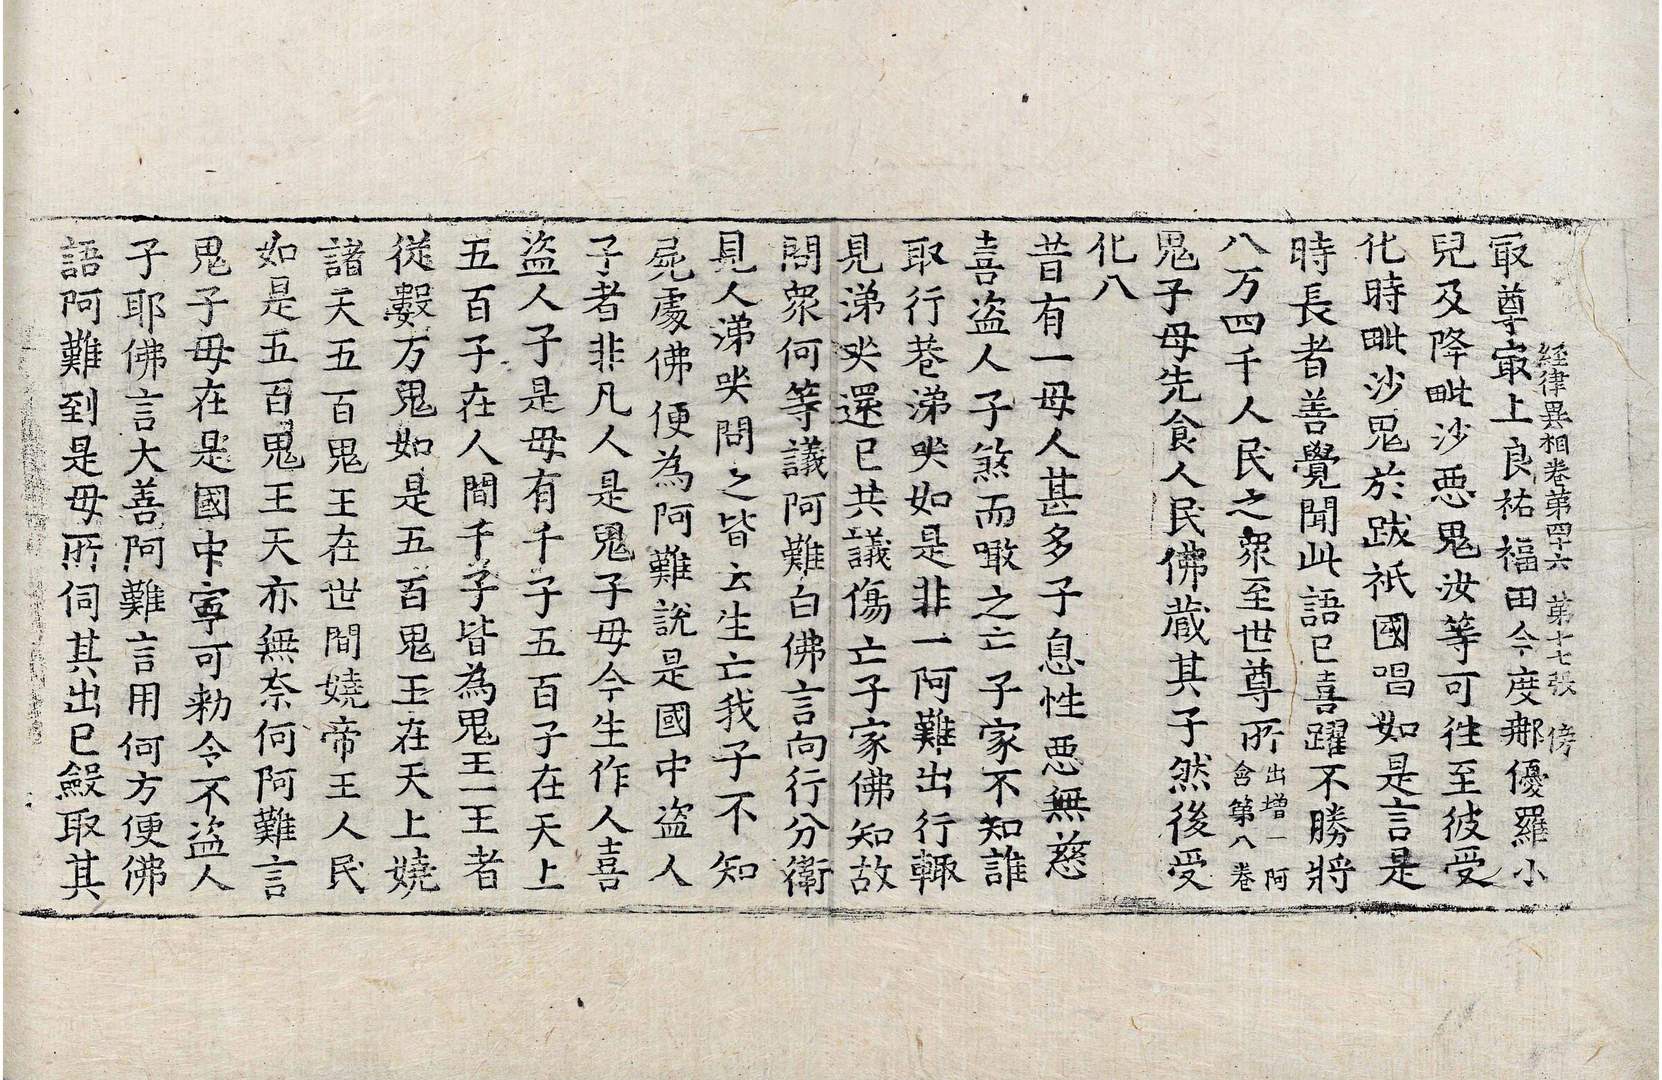 経律異相卷第四十六 第十七張 傍
冣尊冣上良祐福田今度那優羅小
兒及降毗沙惡鬼汝等可往至彼受
化時毗沙鬼於跋祇國唱如是言是
時長者善覺聞此語已喜躍不勝將
八万四千人民之衆至世尊所出增一阿
含第八卷
鬼子母先食人民佛藏其子然後受
化八
昔有一母人甚多子息性惡無慈
喜盗人子煞而噉之亡子家不知誰
取行巷涕哭如是非一阿難出行輙
見涕哭還已共議傷亡子家佛知故
問衆何等議阿難白佛言向行分衛
見人涕哭問之皆云生亡我子不知
屍處佛便為阿難說是國中盗人
子者非凡人是鬼子母今生作人喜
盗人子是母有千子五百子在天上
五百子在人間千子皆為鬼王一王者
從數万鬼如是五百鬼王在天上嬈
諸天五百鬼王在世間嬈帝王人民
如是五百鬼王天亦無柰何阿難言
鬼子母在是國中寧可勑令不盗人
子耶佛言大善阿難言用何方便佛
語阿難到是母所伺其出已斂取其